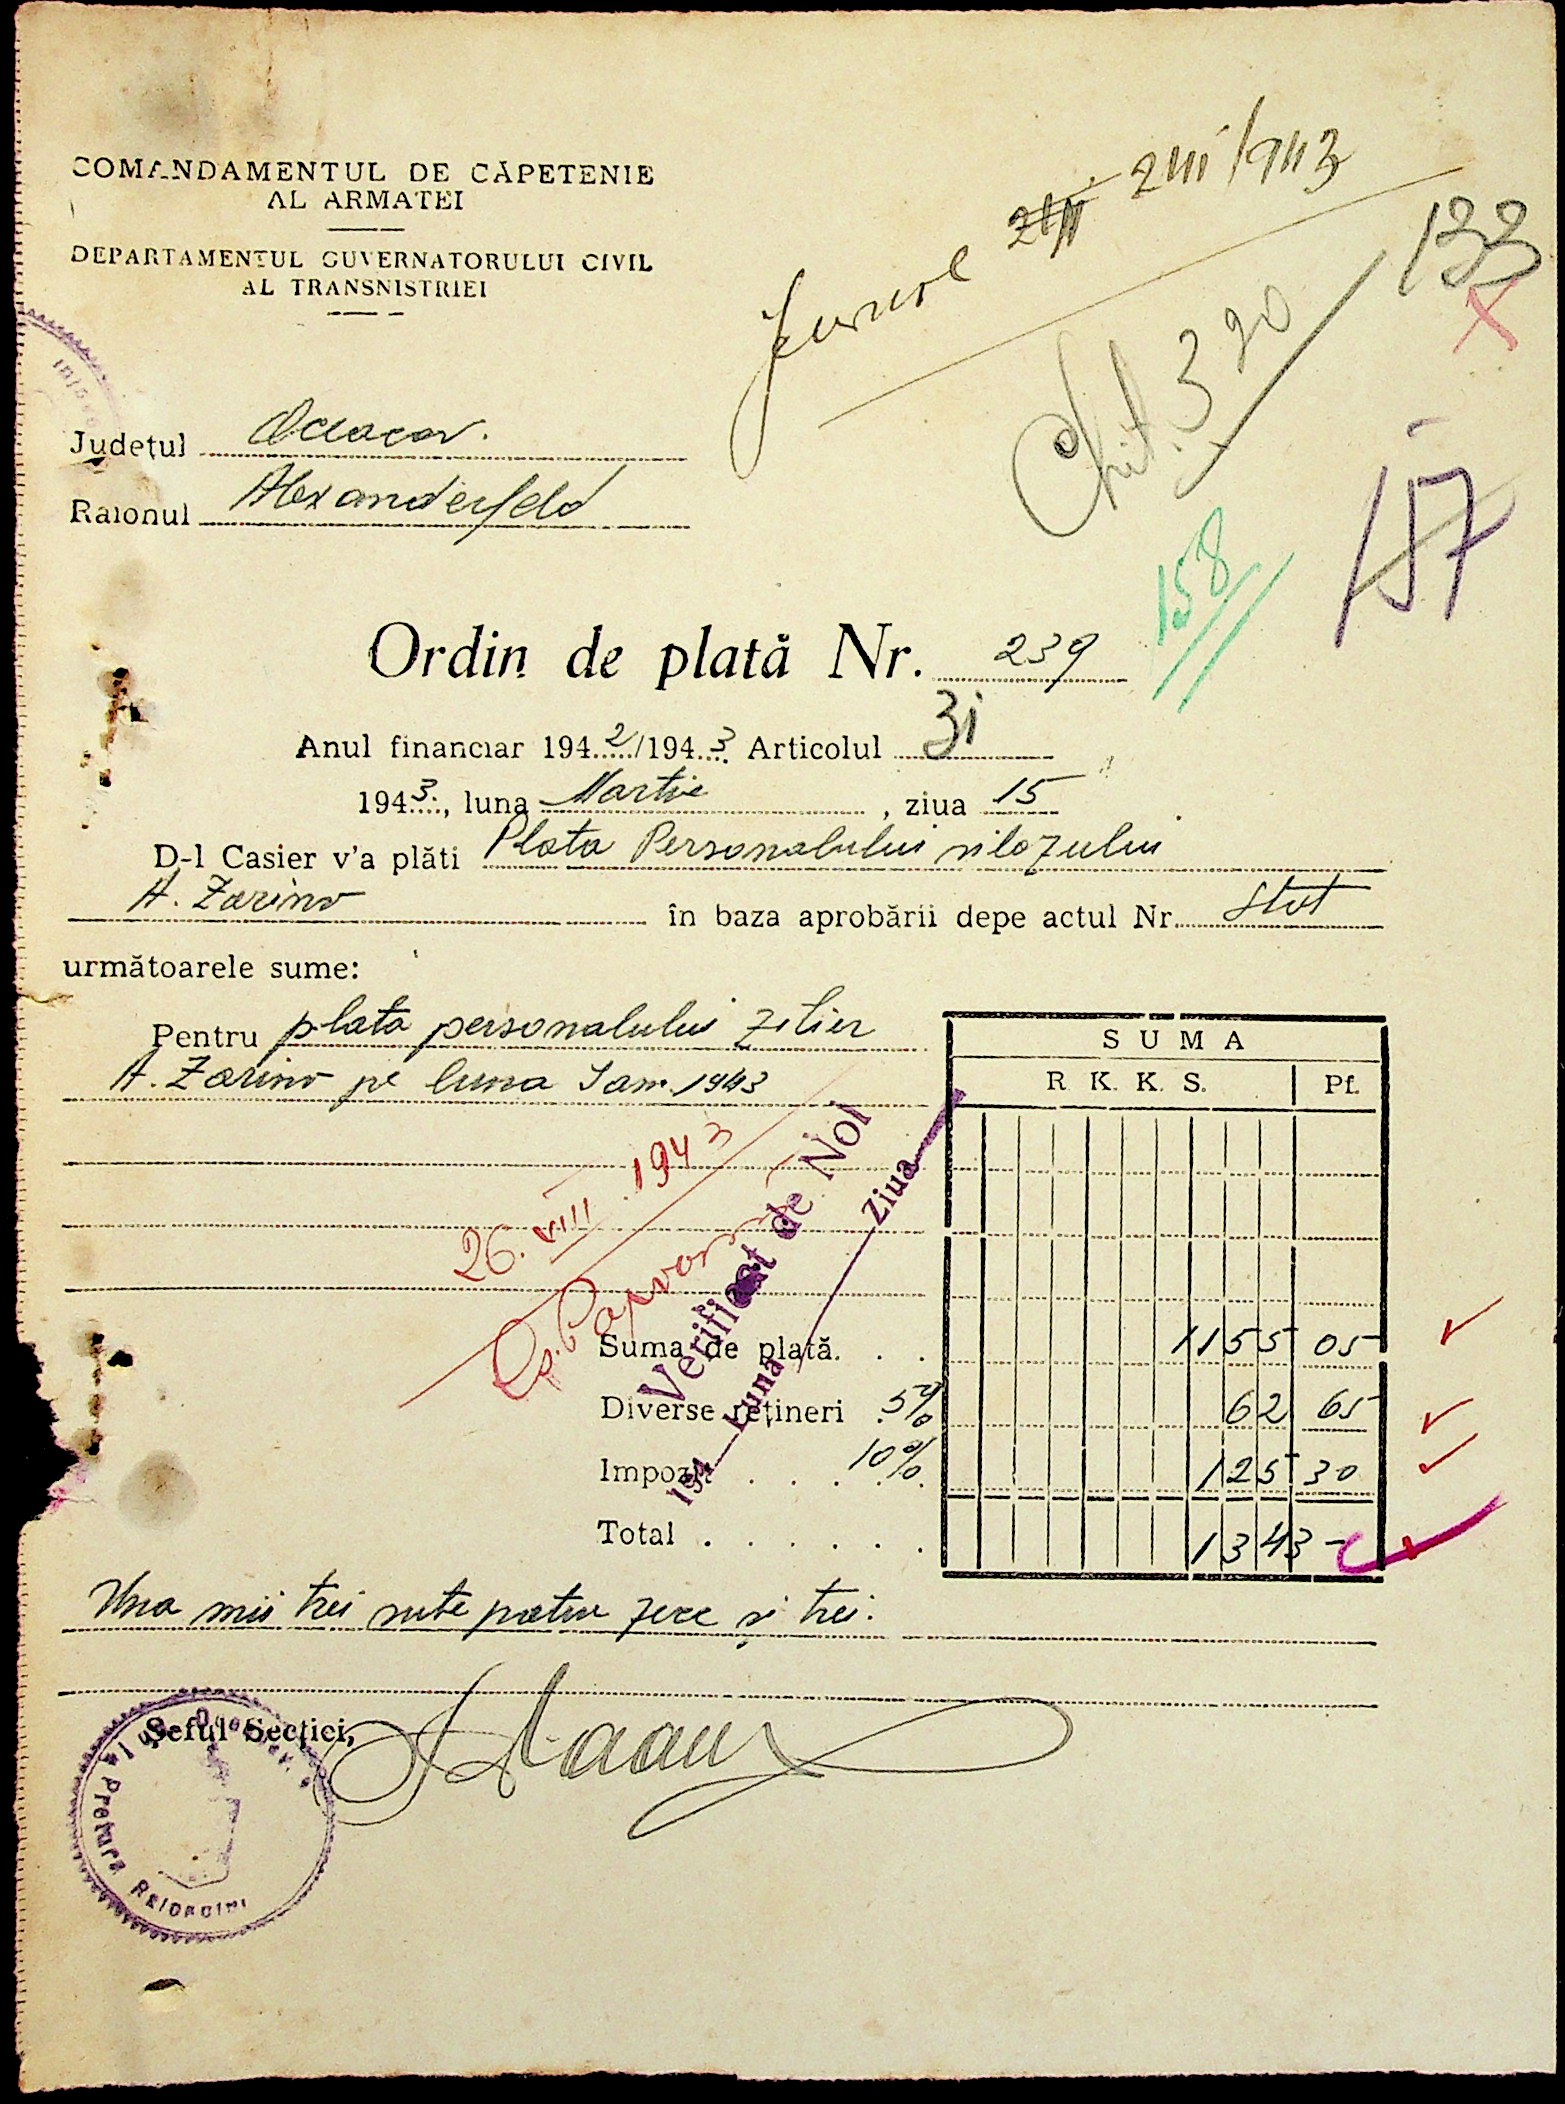 COMANDAMENTUL DE CĂPETENIE
AL ARMATEI
DEPARTAMENTUL GUVERNATORULUI CIVIL
AL TRANSNISTRIEI
2III/943
133
Chit. 390
X
Județul Oceacov.
Raionul Alexanderfeld
157
158
Ordin de plată Nr. 239
Anul financiar 1942/1943 Articolul 31
1943, luna Martie, ziua 15
D-l Casier v'a plăti Plata Personalului silozului
A. Zarino în baza aprobării depe actul Nr. Stat
următoarele sume:
Pentru plata personalului zilier
A. Zarino pe luna Ian. 1943
SUMA
R. K. K. S. Pf.
26.VIII.1943
Verificat de Noi
194 Luna Ziua
Suma de plată. . . 1155 05
Diverse rețineri 5% 62 65
Impozit . . . 10% 125 30
Total . . . . . . 1343 -
Una mii trei sute patru zece si trei.
Șeful Secției,
Pretura Raionului